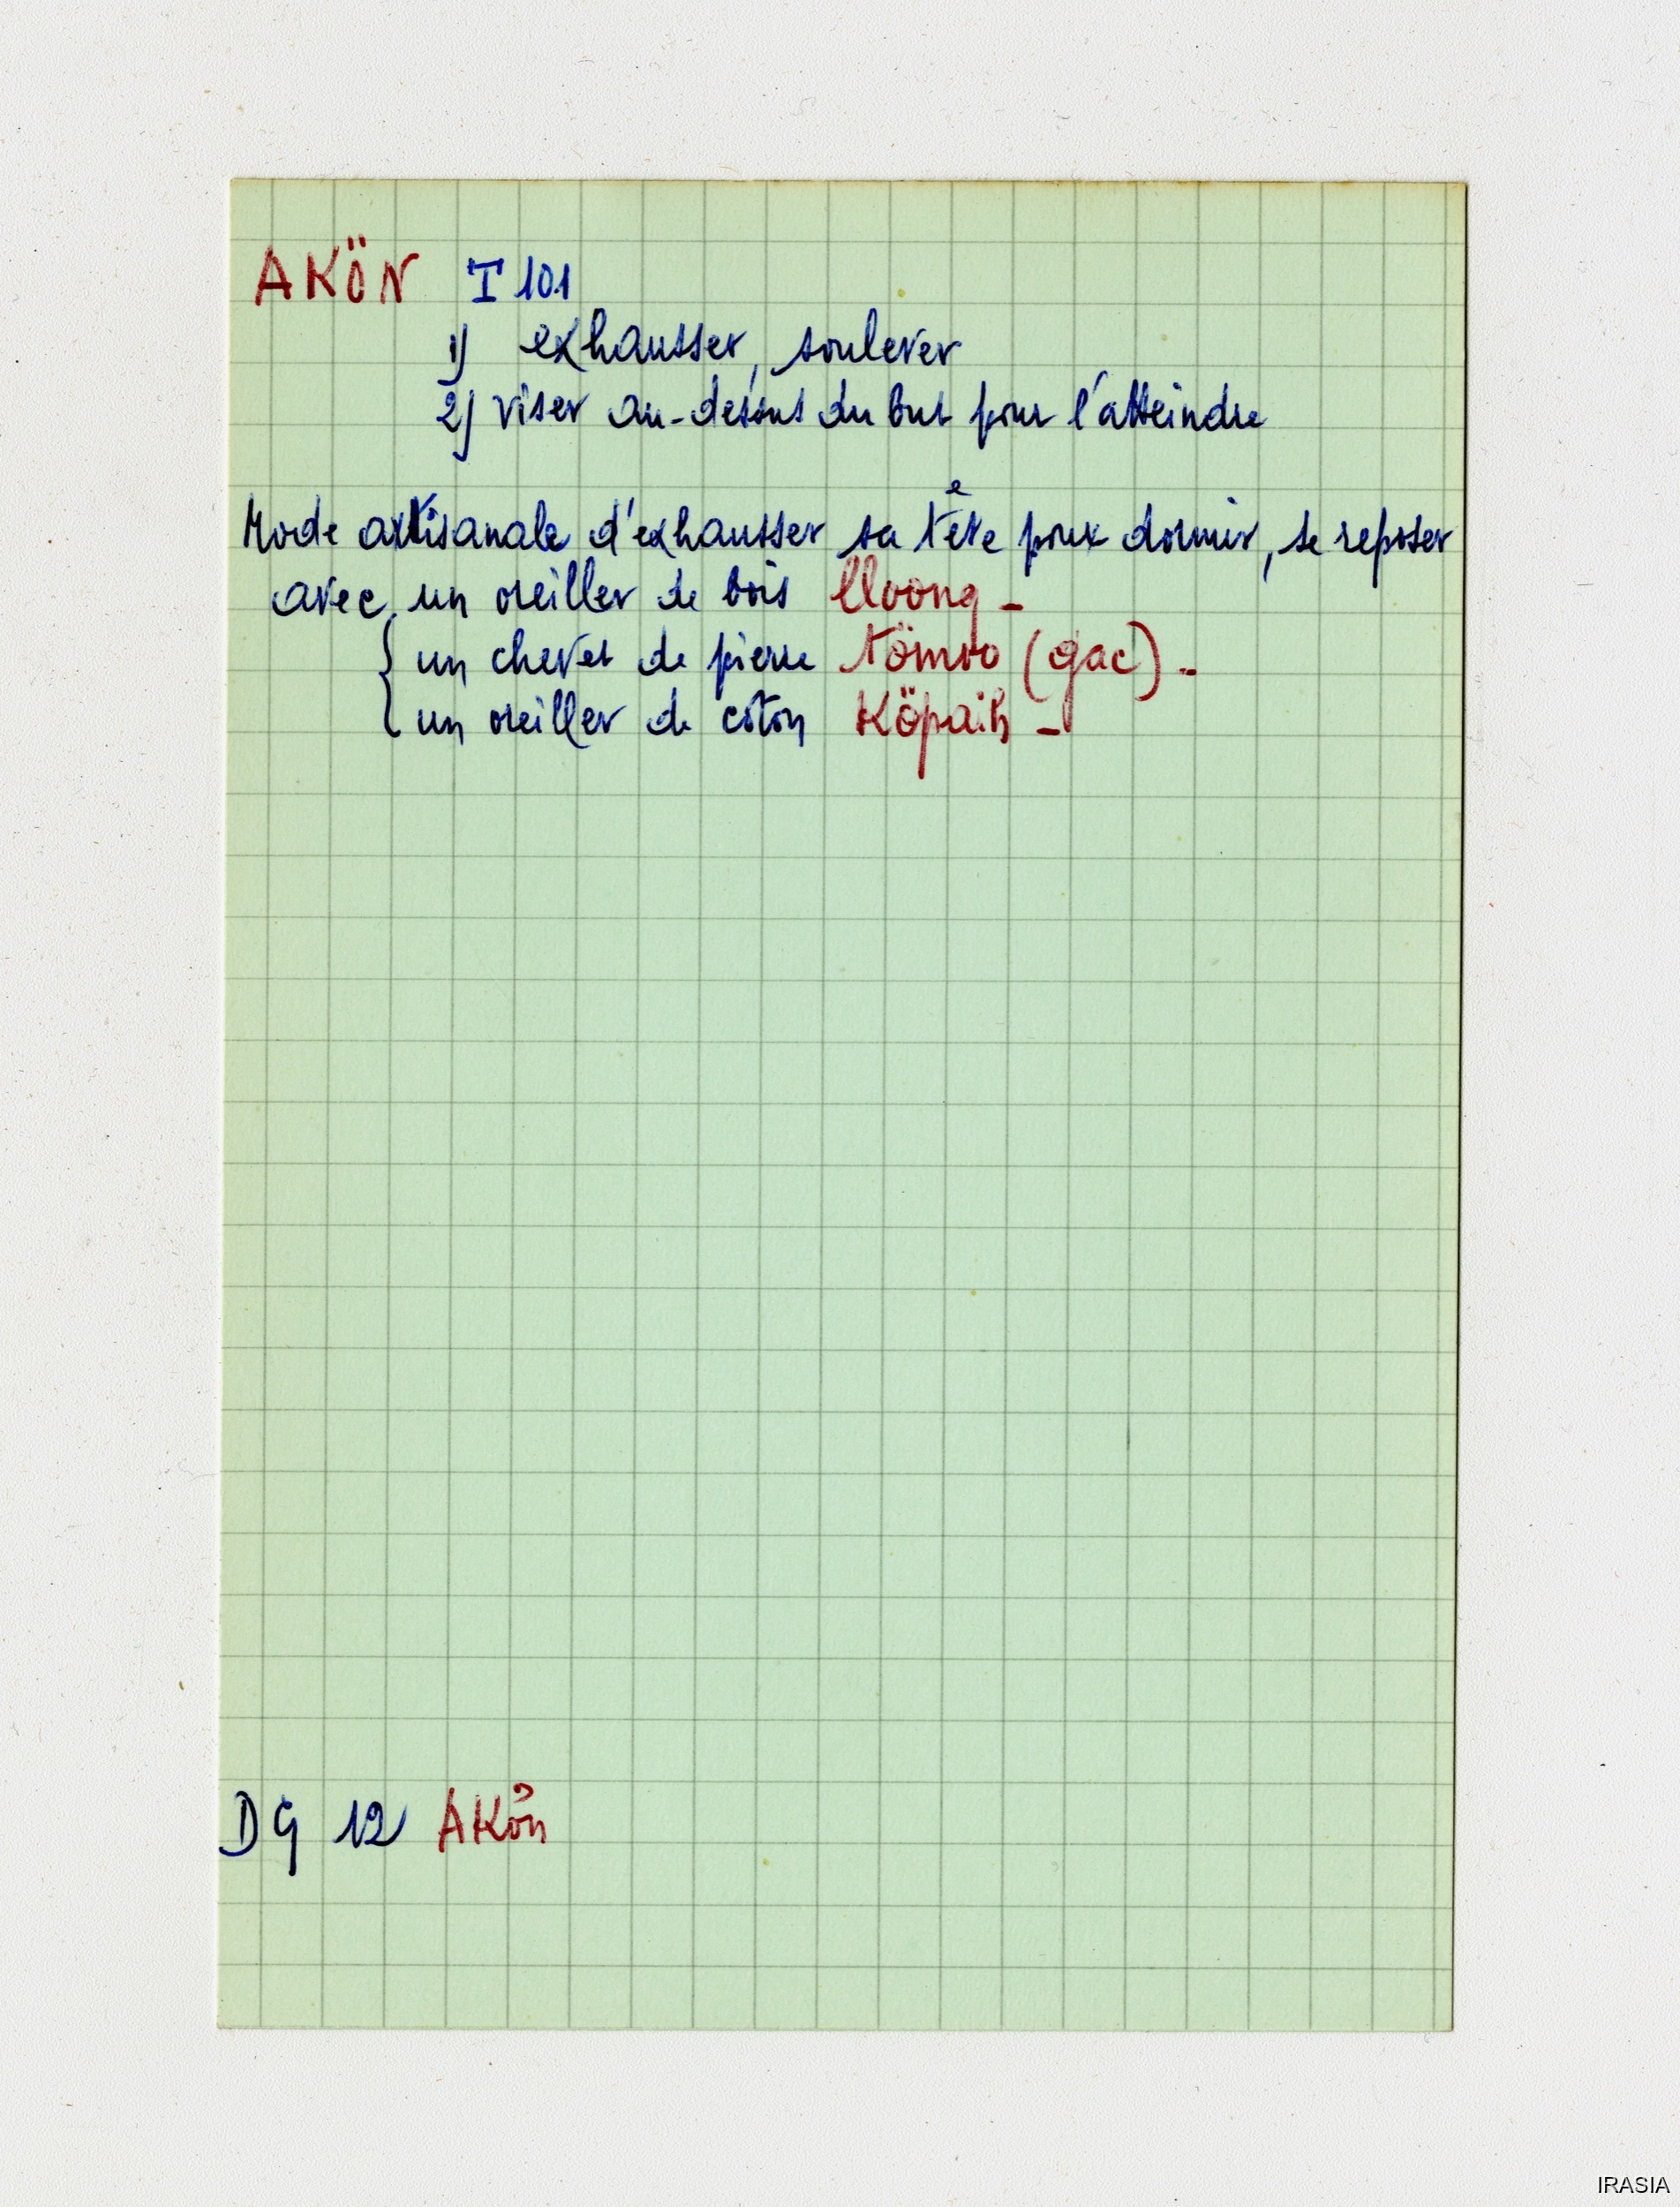 AKÖN I 101
1) exhausser, soulever
2) viser au-dessus du but pour l'atteindre
Mode artisanale d'exhausser sa tête pour dormir, se reposer
avec un oreiller de bois lloong -
{ un chevet de pierre tömoo (gac) -
{ un oreiller de coton Köpaih -
DG 12 AKön
IRASIA